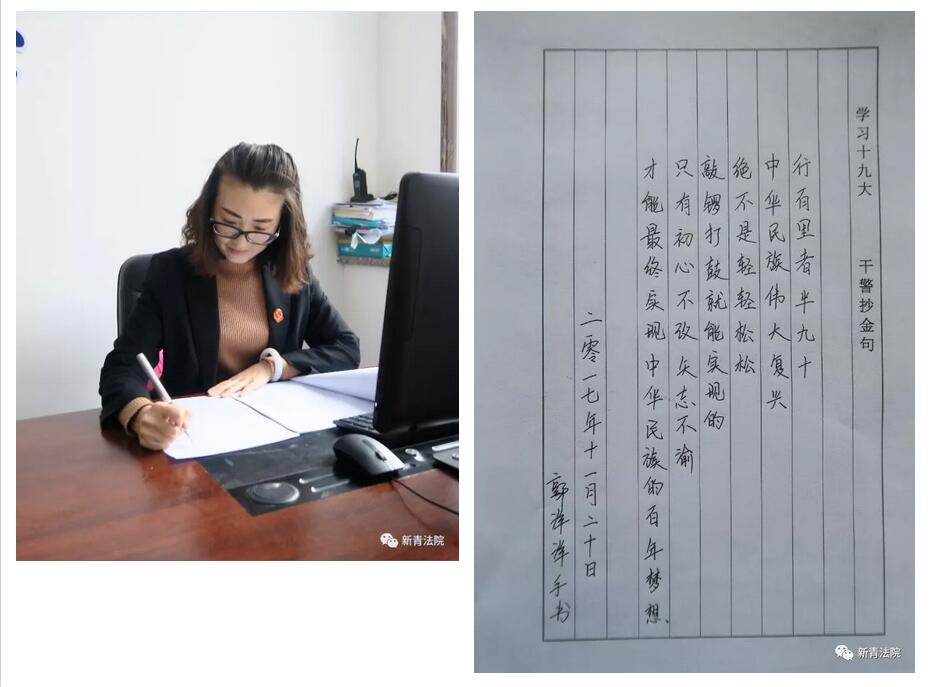 新青法院
学习十九大 干警抄金句
行百里者半九十
中华民族伟大复兴
绝不是轻轻松松
敲锣打鼓就能实现的
只有初心不改矢志不渝
才能最终实现中华民族的百年梦想、
二零一七年十一月二十日
郭洋洋手书
新青法院